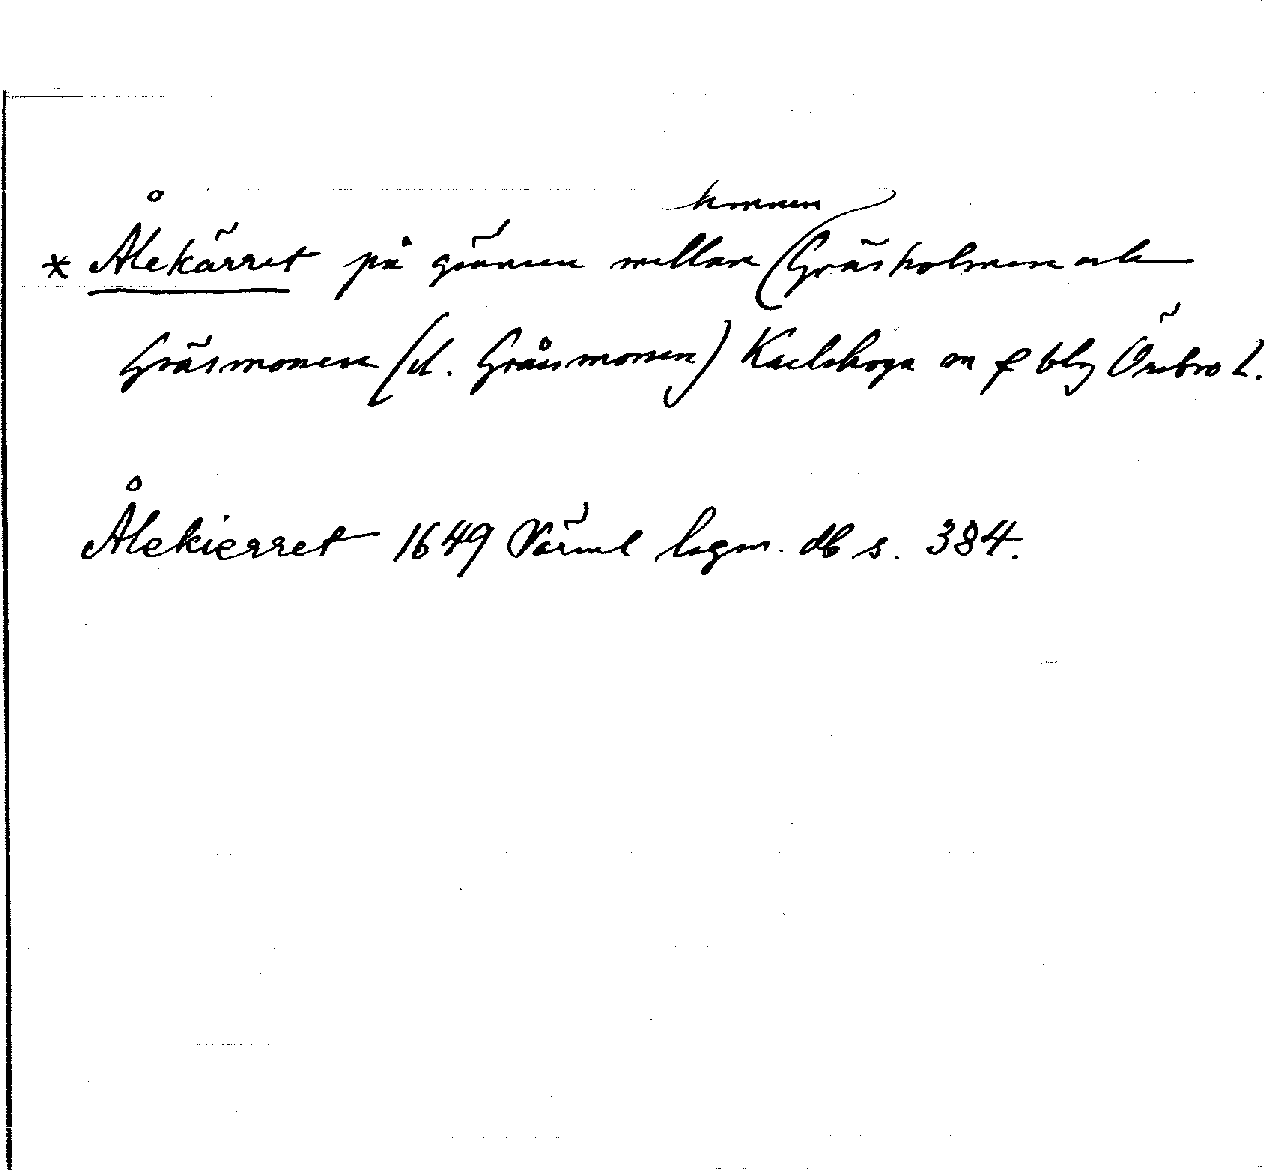 hemmen
* Ålekärret på gränsen mellan (Gräsholmen och
Gräsmonen (el. Gråsmonen) Karlskoga sn o blg Örebro l.
Ålekierret 1649 Värml lagm. db s. 384.